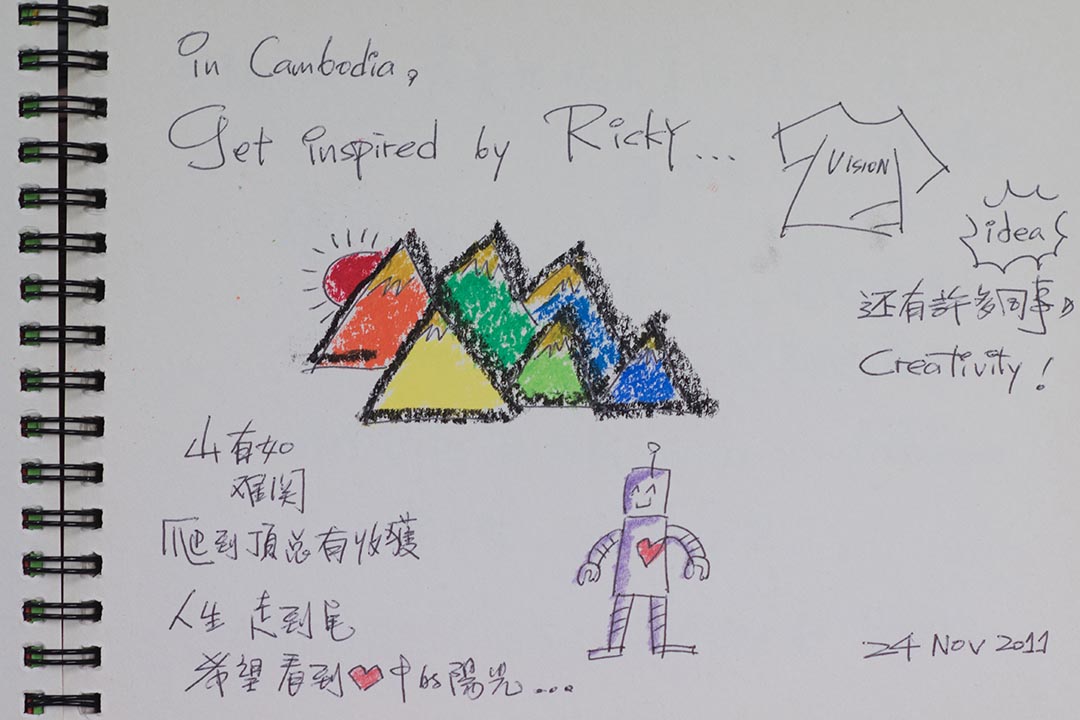 in Cambodia,
Get inspired by Ricky...
VISION
idea
还有許多同事の
Creativity!
山有如
难関
爬到頂总有收獲
人生 走到尾
希望看到❤中的陽光...
24 Nov 2011